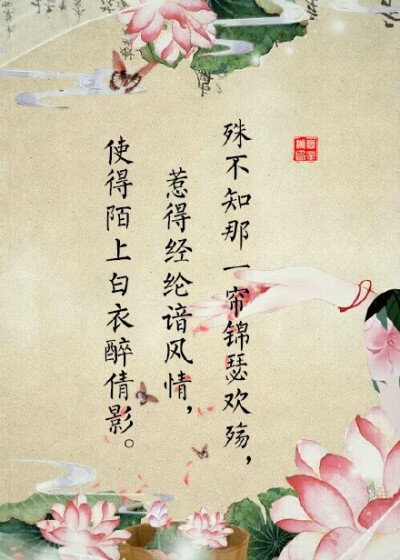 殊不知那一帘锦瑟欢殇，
惹得经纶谙风情，
使得陌上白衣醉倩影。